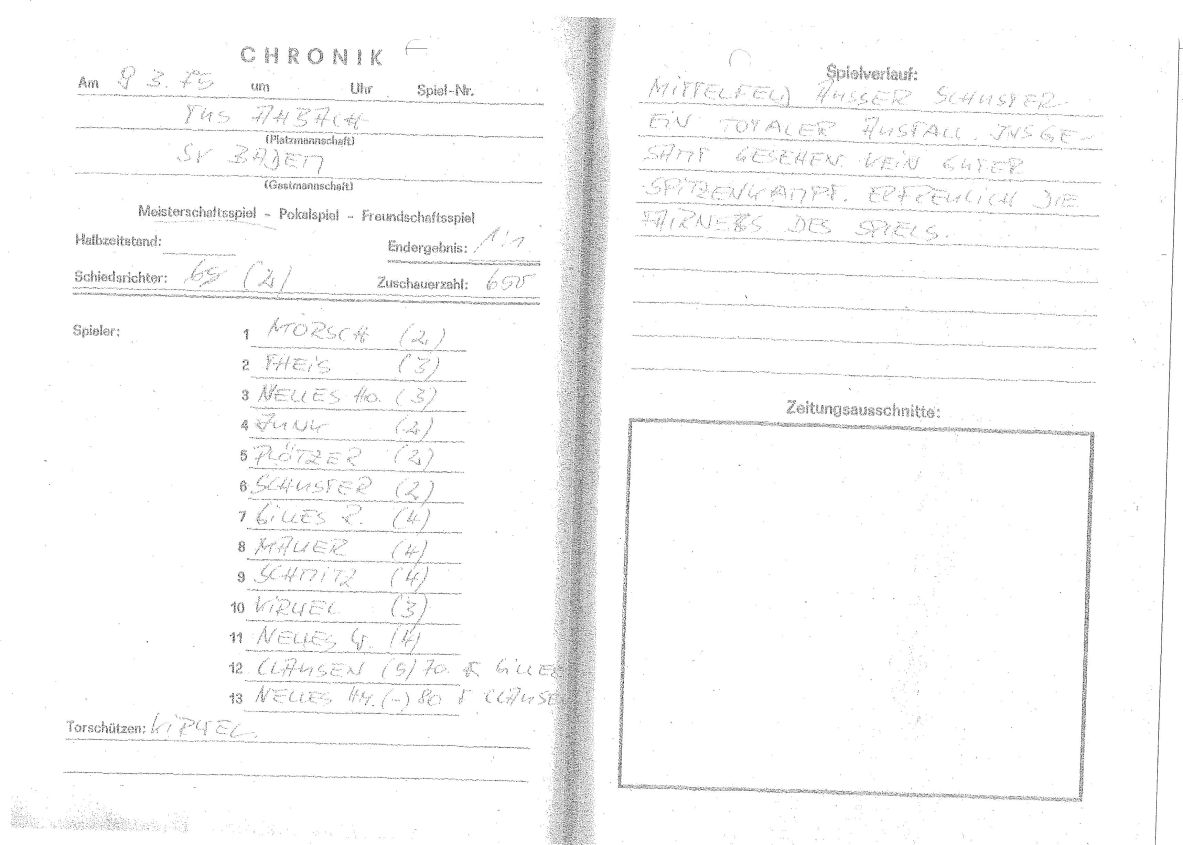 CHRONIK
Am 9 3. 75 um Uhr Spiel-Nr.
TUS AHBACH
(Platzmannschaft)
SV BADEM
(Gastmannschaft)
Meisterschaftsspiel – Pokalspiel – Freundschaftsspiel
Halbzeitstand: Endergebnis: 1:1
Schiedsrichter: (2) Zuschauerzahl: 600
Spieler:
1 MÖRSCH (2)
2 THEIS (3)
3 NELLES HO. (3)
4 JUNK (2)
5 PLÖTZER (2)
6 SCHUSTER (2)
7 GILLES R. (4)
8 MAUER (4)
9 SCHMITZ (4)
10 KIRHEL (3)
11 NELLES G. (4)
12 CLAUSEN (5) 70. F. GILLES
13 NELLES HY. (-) 80. F. CLAUSE
Torschützen: KIRHEL.
Spielverlauf:
MITTELFELD AUSSER SCHUSTER
EIN TOTALER AUSFALL INSGE-
SAMT GESEHEN KEIN GUTER
SPITZENKAMPF. ERFREULICH DIE
FAIRNESS DES SPIELS.
Zeitungsausschnitte: